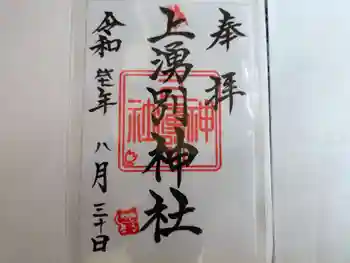 奉拝
上湧別神社
令和 年 八月三十日